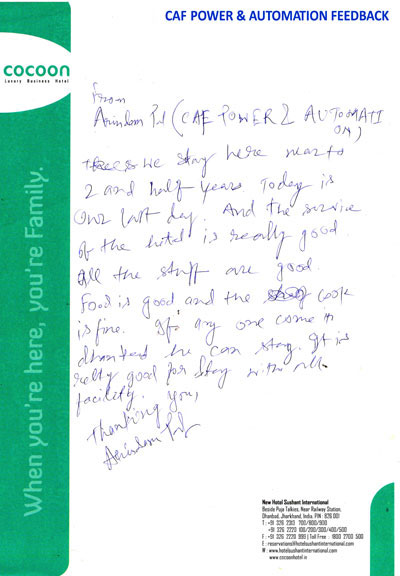 CAF POWER & AUTOMATION FEEDBACK
cocoon
Luxury Business Hotel
When you're here, you're Family.
From
Arindom Pal (CAF POWER & AUTOMATI
ON)
We stay here near to
2 and half years Today is
Our last day. And the service
of the hotel is really good.
All the staff are good.
Food is good and the cook
is fine. If any one come to
dhanbad he can stay. It is
really good for stay with all
facility.
Thanking you,
Arindom Pal
New Hotel Sushant International
Beside Puja Talkies, Near Railway Station,
Dhanbad, Jharkhand, India. PIN : 826 001
T : +91 326 2313 700/800/900
+91 326 2220 100/200/300/400/500
F : +91 326 2228 999 | Toll Free : 1800 2700 500
E : reservations@hotelsushantinternational.com
W : www.hotelsushantinternational.com
www.cocoonhotel.in